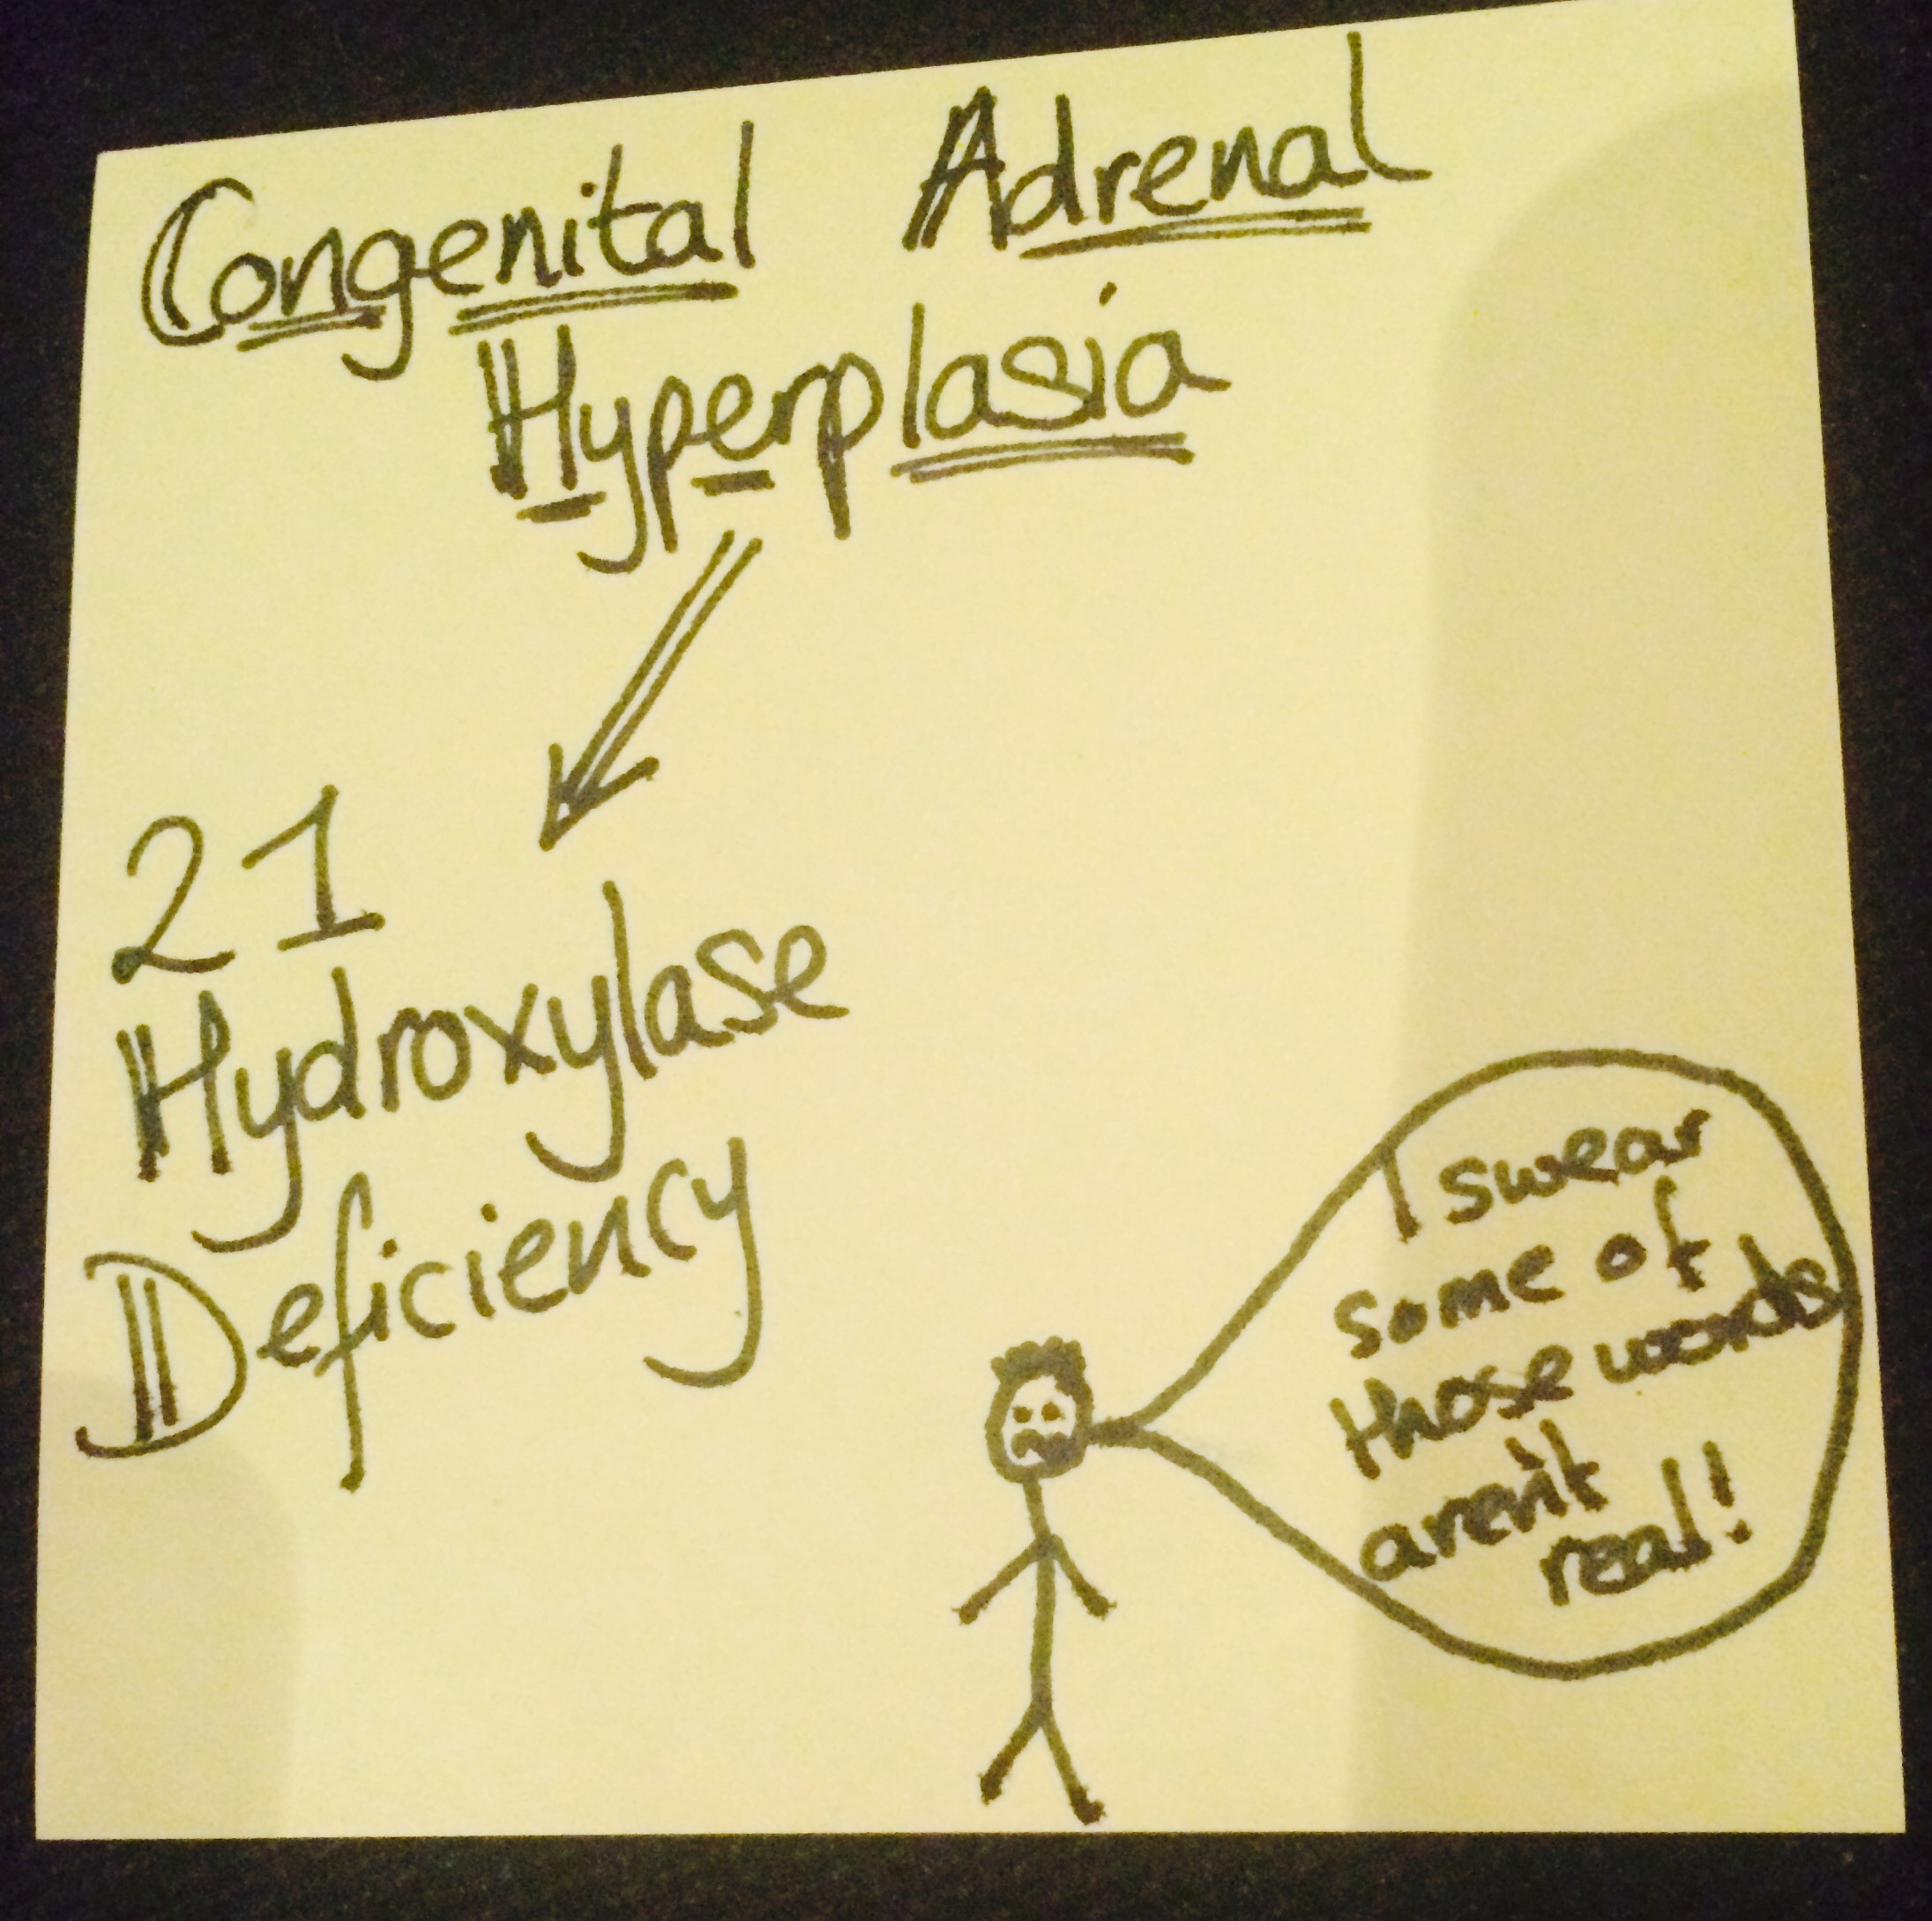 Congenital Adrenal
Hyperplasia
21
Hydroxylase
Deficiency
I swear
some of
those words
aren't
real!